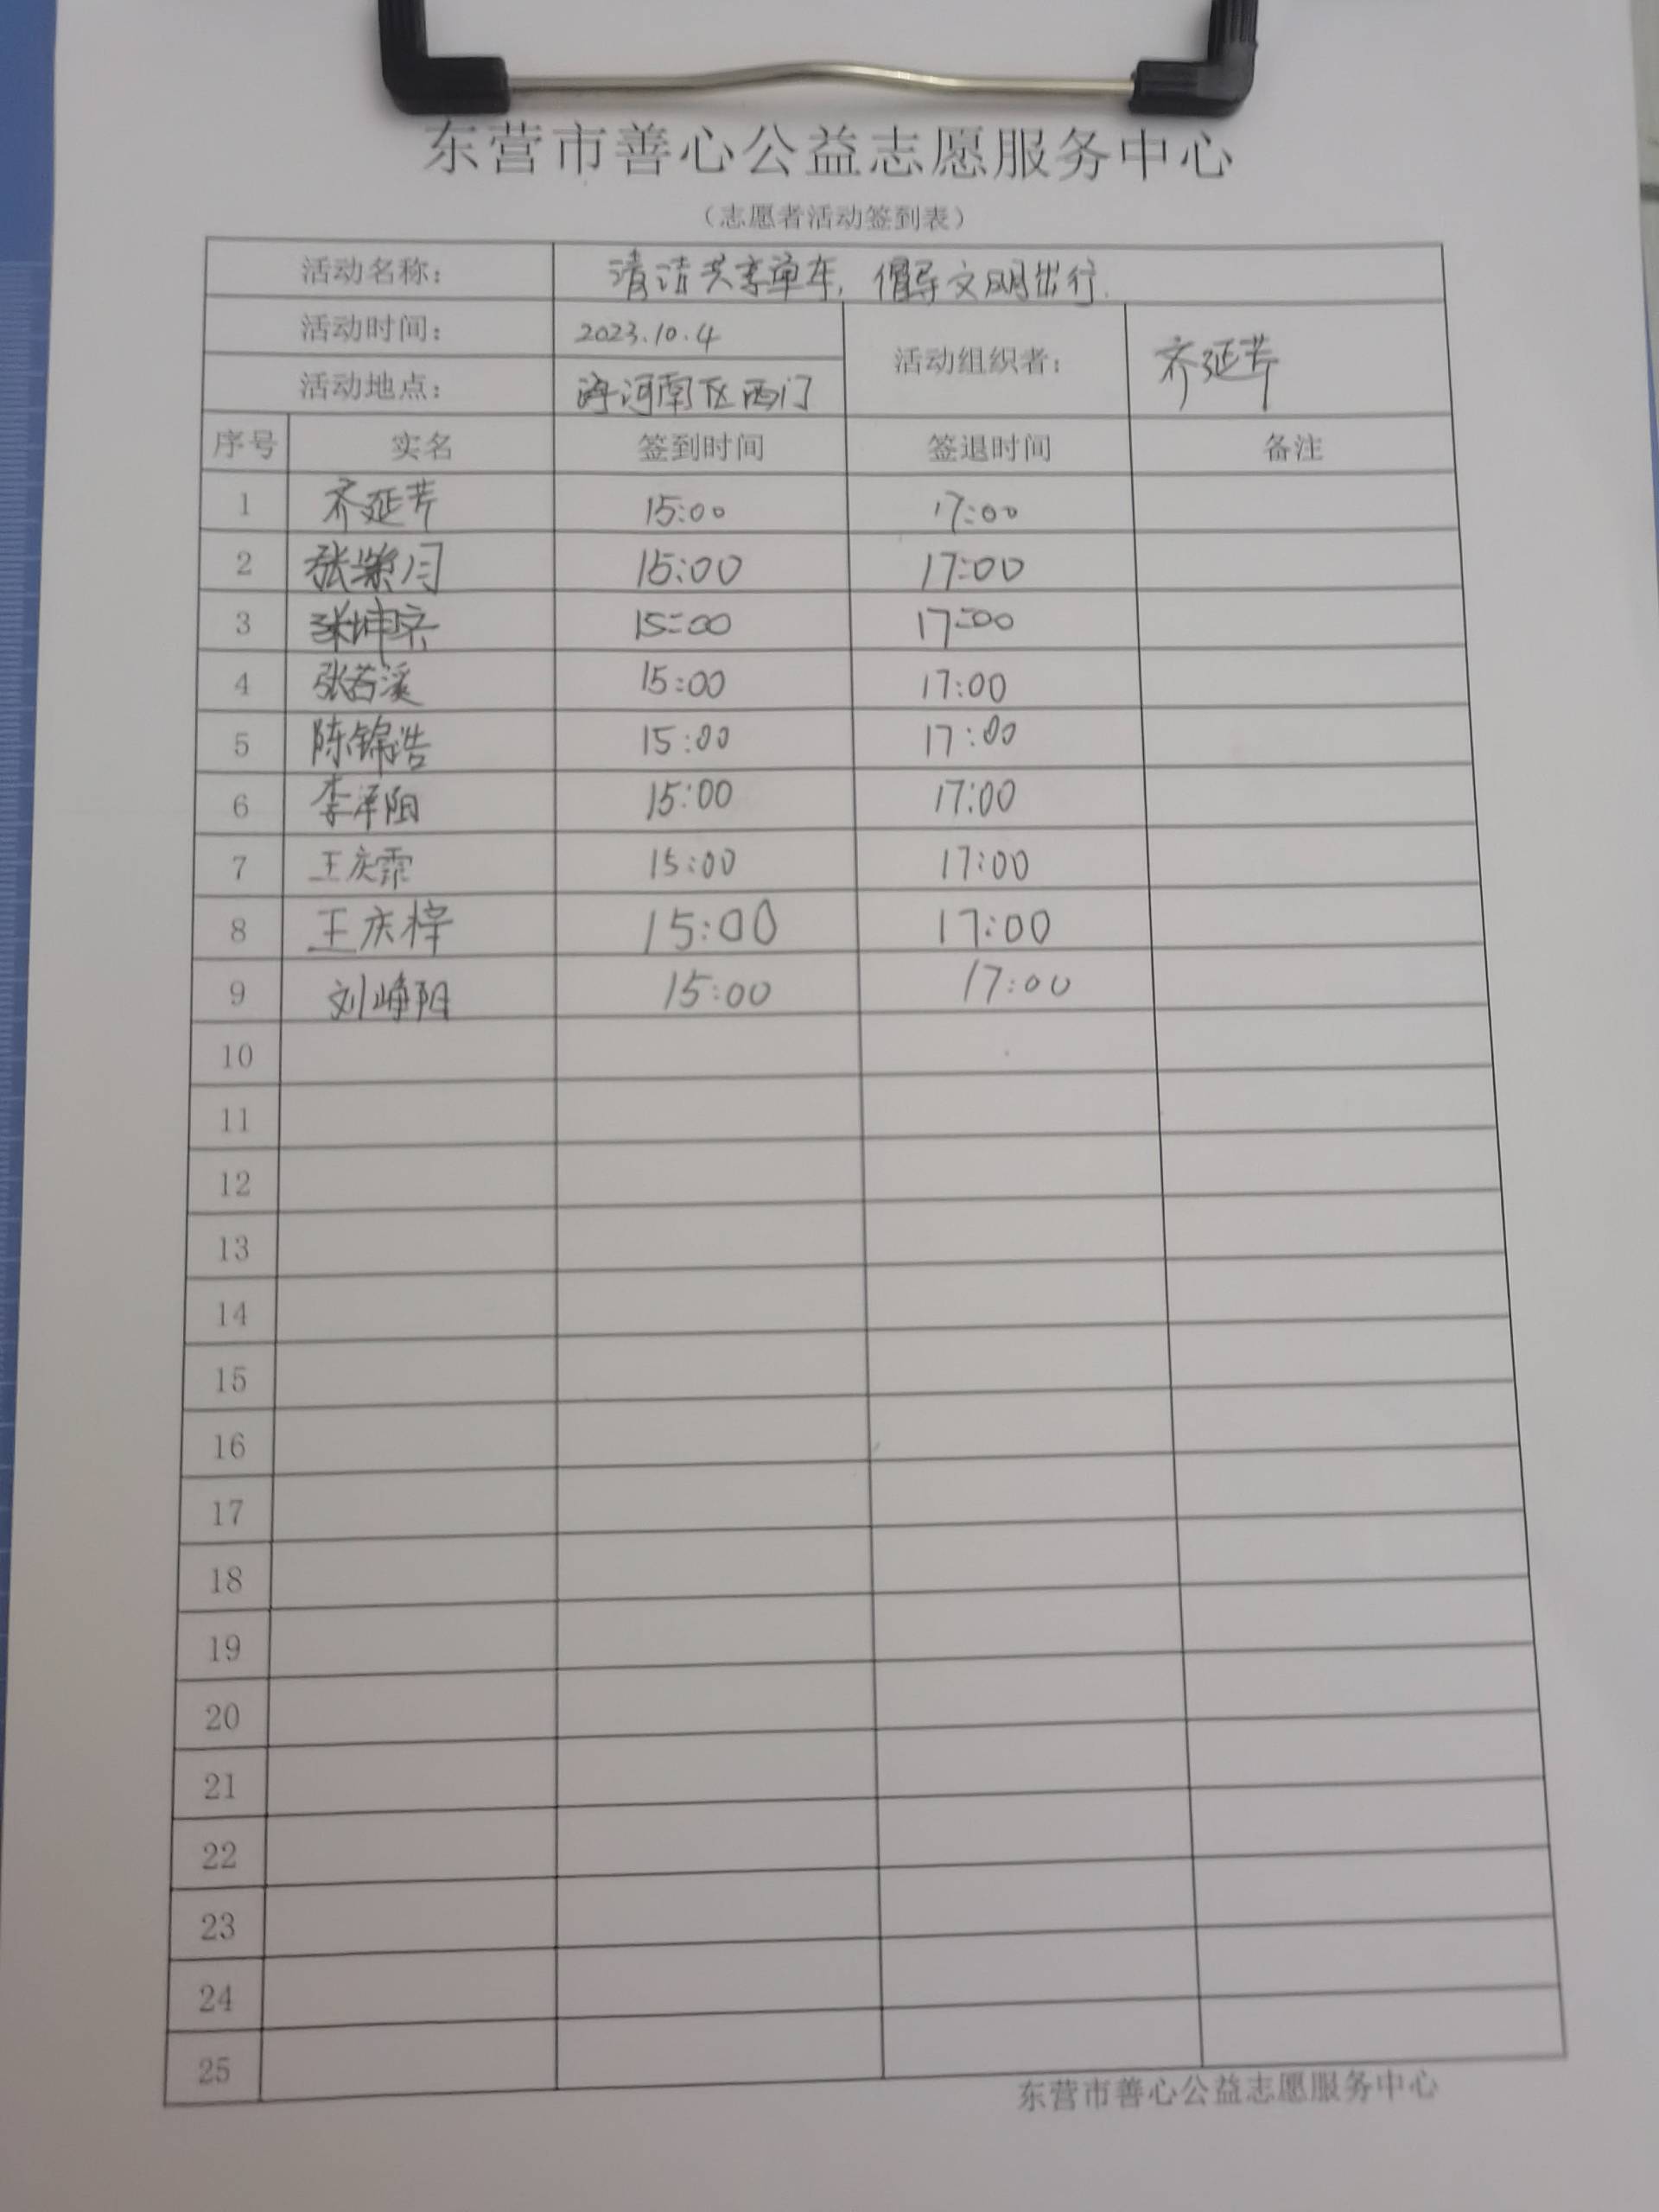 东营市善心公益志愿服务中心
（志愿者活动签到表）
活动名称： 清洁共享单车，倡导文明出行.
活动时间： 2023.10.4 活动组织者： 齐延芹
活动地点： 海河南区西门
序号 实名 签到时间 签退时间 备注
1 齐延芹 15:00 17:00
2 15:00 17:00
3 张坤齐 15:00 17:00
4 张若溪 15:00 17:00
5 陈锦浩 15:00 17:00
6 李泽阳 15:00 17:00
7 王庆霏 15:00 17:00
8 王庆梓 15:00 17:00
9 刘峥阳 15:00 17:00
10
11
12
13
14
15
16
17
18
19
20
21
22
23
24
25
东营市善心公益志愿服务中心